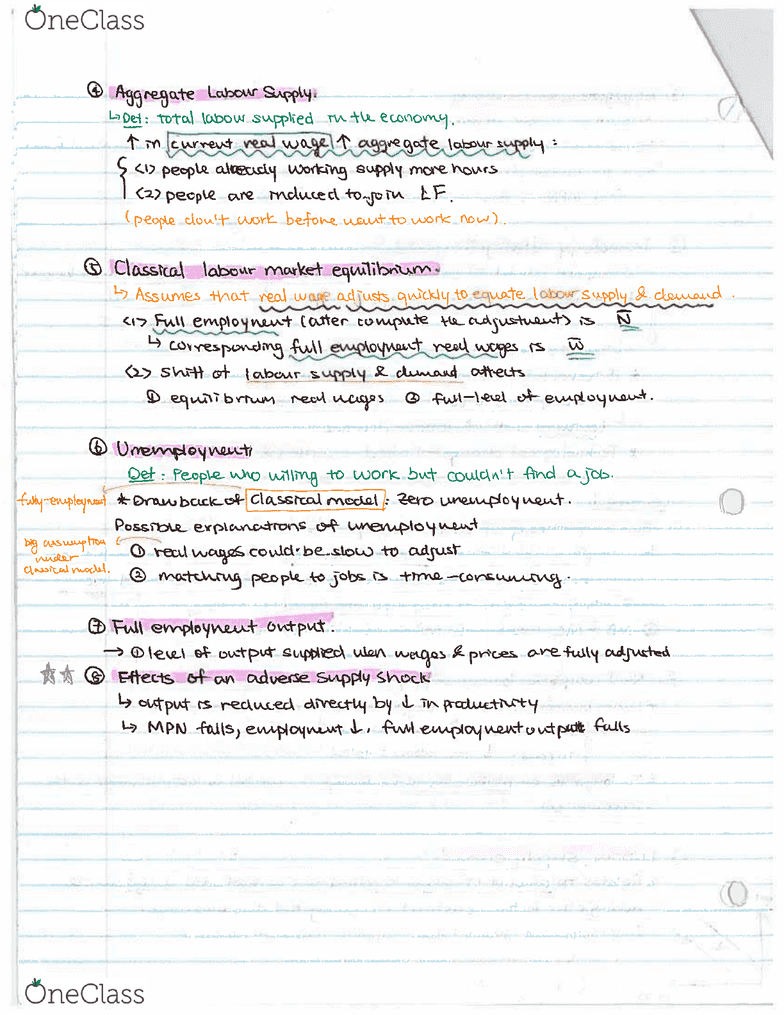 OneClass
④ Aggregate Labour Supply.
↳ Def: total labour supplied in the economy.
↑ in current real wage ↑ aggregate labour supply:
<1> people already working supply more hours
<2> people are induced to join LF.
(people don't work before want to work now).
⑤ Classical labour market equilibrium.
↳ Assumes that real wage adjusts quickly to equate labour supply & demand.
<1> Full employment (after compute the adjustment) is N̅
↳ corresponding full employment real wages is w̅
<2> Shift of labour supply & demand affects
① equilibrium real wages ② full-level of employment.
⑥ Unemployment
Def: People who willing to work but couldn't find a job.
fully-employment * Drawback of Classical model: Zero unemployment.
Possible explanations of unemployment
big assumption under classical model. ① real wages could be slow to adjust
② matching people to jobs is time-consuming.
⑦ Full employment output.
→ ① level of output supplied when wages & prices are fully adjusted
☆☆ ⑧ Effects of an adverse supply shock
↳ output is reduced directly by ↓ in productivity
↳ MPN falls, employment ↓, full employment output falls
OneClass